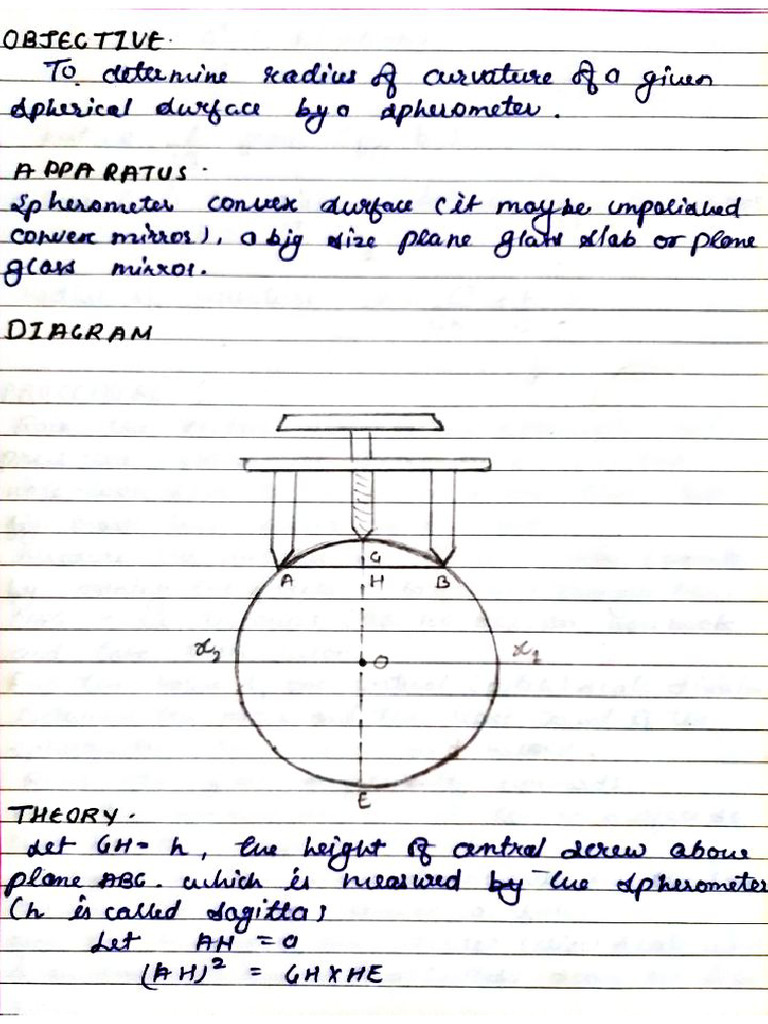 OBJECTIVE.
To determine radius of curvature of a given
spherical surface by a spherometer.
APPARATUS.
Spherometer convex surface (it may be unpolished
convex mirror), a big size plane glass slab or plane
glass mirror.
DIAGRAM
G
A H B
x₂ O x₁
E
THEORY.
Let GH = h, the height of central screw above
plane ABC. which is measured by the spherometer
(h is called sagitta)
Let AH = a
(AH)² = GH×HE